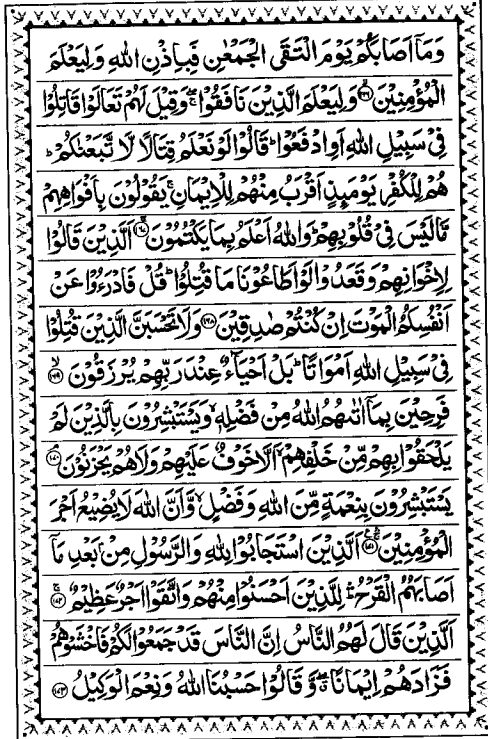 وَمَآ اَصَابَكُمْ يَوْمَ الْتَقَى الْجَمْعٰنِ فَبِاِذْنِ اللّٰهِ وَلِيَعْلَمَ
الْمُؤْمِنِيْنَ ۙ وَلِيَعْلَمَ الَّذِيْنَ نَافَقُوْا ۖۚ وَقِيْلَ لَهُمْ تَعَالَوْا قَاتِلُوْا
فِيْ سَبِيْلِ اللّٰهِ اَوِادْفَعُوْا ؕ قَالُوْا لَوْ نَعْلَمُ قِتَالًا لَّا تَّبَعْنٰكُمْ ؕ
هُمْ لِلْكُفْرِ يَوْمَىِٕذٍ اَقْرَبُ مِنْهُمْ لِلْاِيْمَانِ ۚ يَقُوْلُوْنَ بِاَفْوَاهِهِمْ
مَّا لَيْسَ فِيْ قُلُوْبِهِمْ ؕ وَاللّٰهُ اَعْلَمُ بِمَا يَكْتُمُوْنَ ۚ اَلَّذِيْنَ قَالُوْا
لِاِخْوَانِهِمْ وَقَعَدُوْا لَوْ اَطَاعُوْنَا مَا قُتِلُوْا ؕ قُلْ فَادْرَءُوْا عَنْ
اَنْفُسِكُمُ الْمَوْتَ اِنْ كُنْتُمْ صٰدِقِيْنَ ۝ وَلَا تَحْسَبَنَّ الَّذِيْنَ قُتِلُوْا
فِيْ سَبِيْلِ اللّٰهِ اَمْوَاتًا ؕ بَلْ اَحْيَآءٌ عِنْدَ رَبِّهِمْ يُرْزَقُوْنَ ۙ
فَرِحِيْنَ بِمَآ اٰتٰىهُمُ اللّٰهُ مِنْ فَضْلِهٖ ۙ وَيَسْتَبْشِرُوْنَ بِالَّذِيْنَ لَمْ
يَلْحَقُوْا بِهِمْ مِّنْ خَلْفِهِمْ ۙ اَلَّا خَوْفٌ عَلَيْهِمْ وَلَا هُمْ يَحْزَنُوْنَ ۘ
يَسْتَبْشِرُوْنَ بِنِعْمَةٍ مِّنَ اللّٰهِ وَفَضْلٍ ۙ وَّاَنَّ اللّٰهَ لَا يُضِيْعُ اَجْرَ
الْمُؤْمِنِيْنَ ۝ اَلَّذِيْنَ اسْتَجَابُوْا لِلّٰهِ وَالرَّسُوْلِ مِنْۢ بَعْدِ مَآ
اَصَابَهُمُ الْقَرْحُ ۛؕ لِلَّذِيْنَ اَحْسَنُوْا مِنْهُمْ وَاتَّقَوْا اَجْرٌ عَظِيْمٌ ۚ
اَلَّذِيْنَ قَالَ لَهُمُ النَّاسُ اِنَّ النَّاسَ قَدْ جَمَعُوْا لَكُمْ فَاخْشَوْهُمْ
فَزَادَهُمْ اِيْمَانًا ۖۗ وَّقَالُوْا حَسْبُنَا اللّٰهُ وَنِعْمَ الْوَكِيْلُ ۝